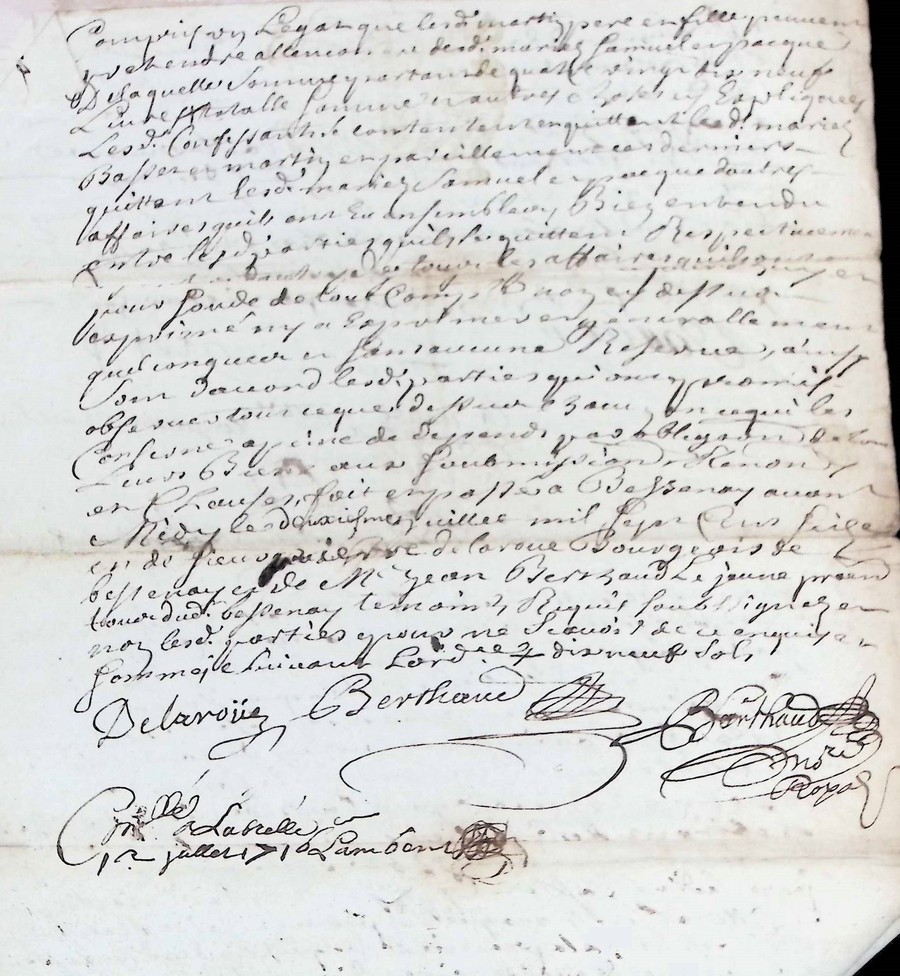 Compris un Legat que lesd. martin pere et fille peuvent
pretendre allencon desd. mariez Samuel et pacque
De laquelle Somme partant de quatre vingt dix neuf
Livre totalle Somme et autres choses cy Expliquees
Lesd. Confessants contentent en quittent lesd. mariez
Basset et martin et pareillement ces derniers
quittent lesd. mariez Samuel et pacque dautres
affaires quils ont Eu ensemble Bien entendu
entre lesd. parties quils se quittent Respectivement
de toutes les affaires quils ont
pour solde de tout Compte non cy dessus
exprimé ny a Exprimer et generallement
quelconques et sans aucune Reserve, ainsy
Sont daccord lesd. parties qui ont promis
observer tout ce que dessus en ce qui les
Conserne a peine de depends par obligaon de tous
Leurs Biens aux Soubmissions Renon
et Clauses, fait et passé a Bessenay avant
Midy le deuxiesme Juillet mil Sept Cent Seize
en de sieur pierre delaroue Bourgeois de
bessenay et de Mr. Jean Berthaud Le jeune praan
tour dud. bessenay temoins Requis Soubsignez et
non lesd. parties pour ne Scavoir de ce enquis et
Sommé Suivant Lord.ce dix neuf Sols
Delaroüe Berthaud Berthaud
no.re
Royal
Con.llé a Labrelle
12 juillet 1716 Lambert